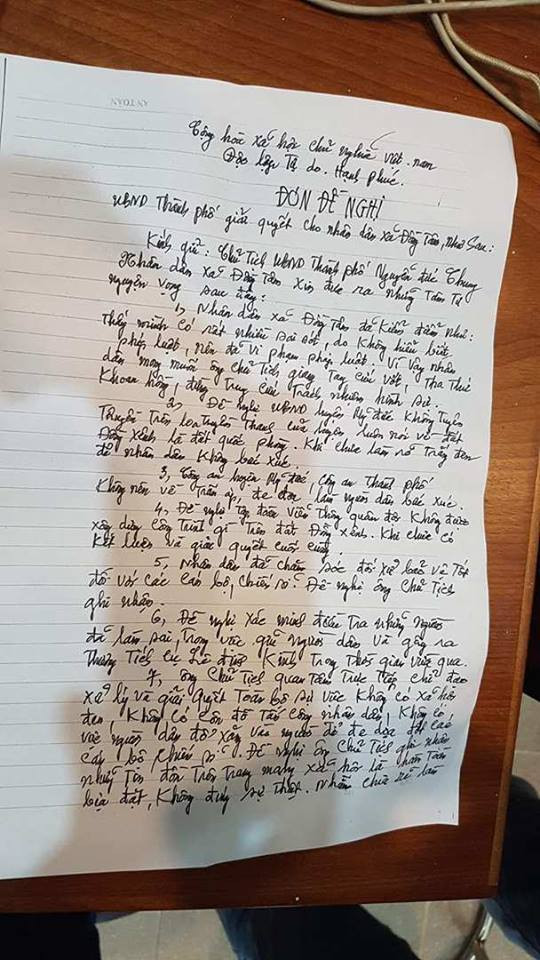 AN TOAN
Cộng hòa xã hội chủ nghĩa việt nam
Độc lập Tự do. Hạnh phúc.
ĐƠN ĐỀ NGHỊ
UBND Thành phố giải quyết cho nhân dân xã Đồng Tâm, như sau:
Kính gửi: Chủ Tịch UBND Thành phố Nguyễn Đức Chung
Nhân dân xã Đồng Tâm xin đưa ra những Tâm Tư
nguyện vọng sau đây:
1, Nhân dân xã Đồng Tâm đã kiểm điểm như:
Thấy mình có rất nhiều sai sót, do không hiểu biết
pháp luật, nên đã vi phạm pháp luật. Vì vậy nhân
dân mong muốn ông chủ Tịch giang Tay cứu vớt, Tha Thứ
khoan hồng, đừng truy cứu Trách nhiệm hình sự.
2, Đề nghị UBND huyện Mỹ đức không Tuyên
Truyền Trên loa Truyền Thanh của huyện luôn nói về đất
Đồng Sênh là đất quốc phòng. Khi chưa làm rõ trắng đen
để nhân dân không bức xúc.
3, Công an huyện Mỹ đức, công an thành phố
không nên về Trấn áp, đe dọa làm người dân bức xúc.
4, Đề nghị Tập đoàn viễn Thông quân đội không được
xây dựng công trình gì Trên đất Đồng Sênh. Khi chưa có
kết luận và giải quyết cuối cùng.
5, Nhân dân đã chăm sóc đối xử bảo vệ Tốt
đối với các cán bộ, chiến sĩ. Đề nghị ông Chủ Tịch
ghi nhận.
6, Đề nghị xác minh điều tra những người
đã làm sai, trong việc giữ người dân và gây ra
Thương Tích cụ Lê đình Kình trong Thời gian vừa qua.
7, ông Chủ Tịch quan Tâm Trực Tiếp chỉ đạo
xử lý và giải quyết Toàn bộ sự việc không có xã hội
đen, không có côn đồ Tấn công nhân dân, không có
việc người dân đổ xăng vào người để đe dọa đốt các
cán bộ chiến sĩ. Đề nghị ông Chủ Tịch ghi nhận
những Tin đồn Trên Trang mạng xã hội là hoàn Toàn
bịa đặt, không đúng sự thật. Nhằm chia rẽ làm